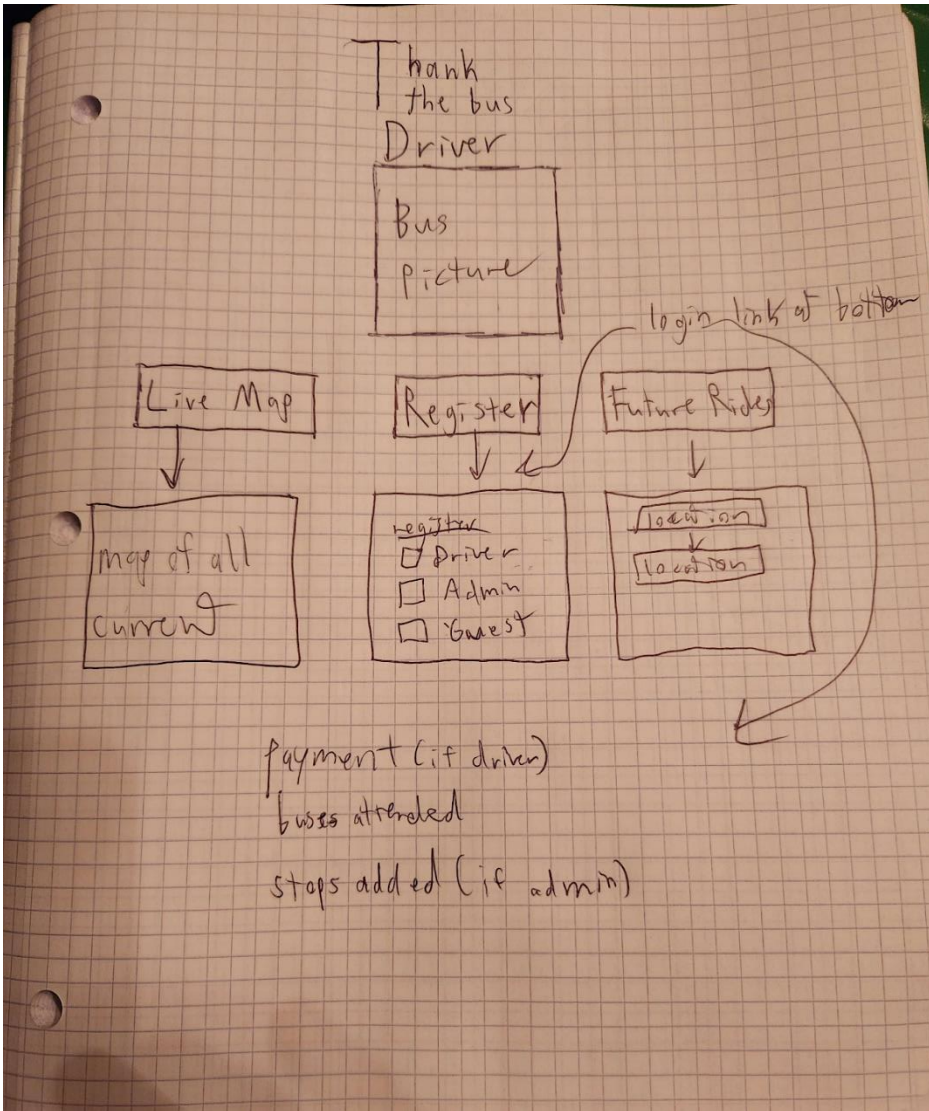 Thank
the bus
Driver
Bus
picture
login link at bottom
Live Map
Register
Future Rides
map of all
current
register
Driver
Admin
Guest
location
location
payment (if driver)
buses attended
stops added (if admin)